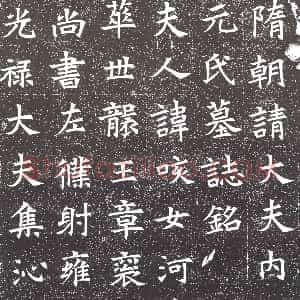 隋朝請大夫内
元氏墓誌銘
夫人諱咳女河
世襲王章襃
尚書左僕射雍
光禄大夫集沁